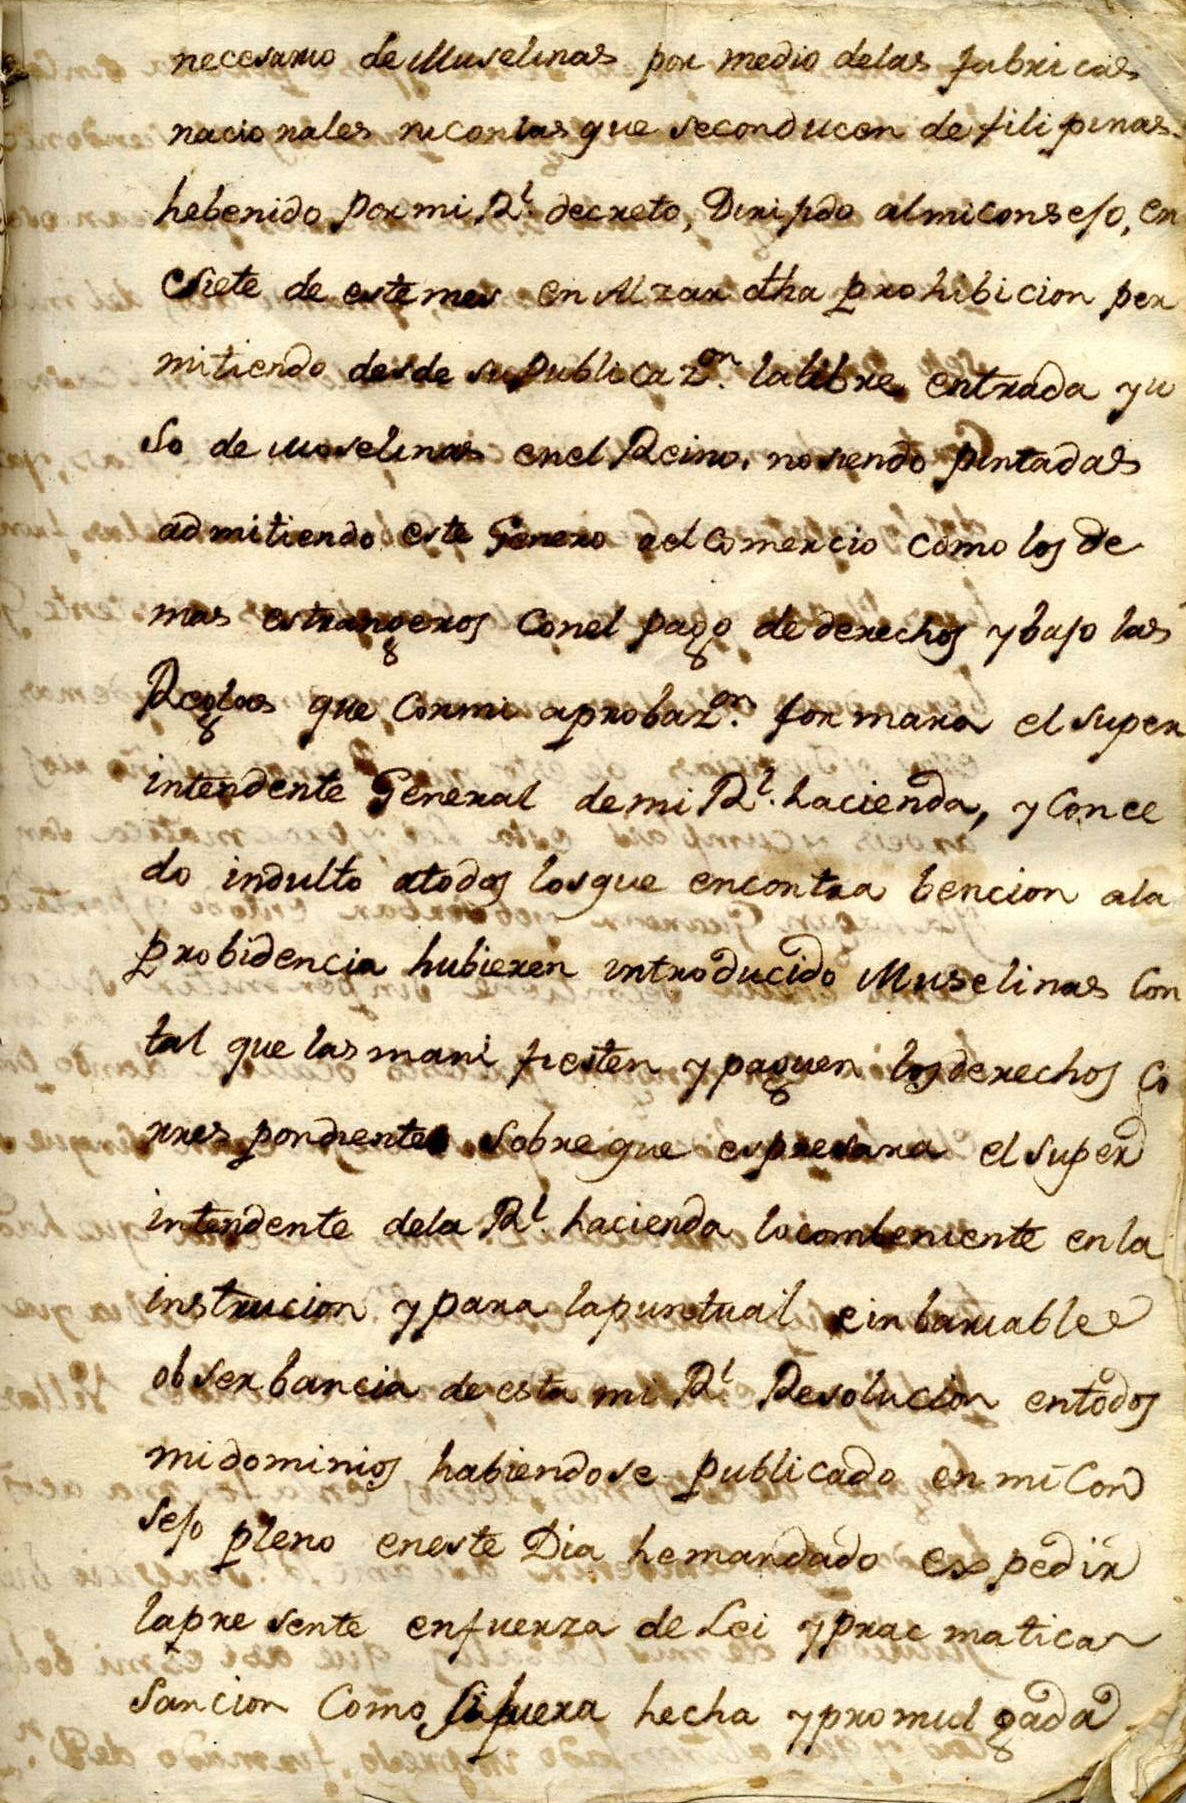 necesario de Muselinas por medio delas fabricas
nacionales niconlas que seconducen de filipinas.
hebenido por mi Rl. decreto, Dirijido almiconsejo, en
Siete de este mes en Alzar dha prohibicion per
mitiendo desde su publicazon. lalibre entrada yu
so de moselinas enel Reino, nosiendo pintadas
admitiendo este Genero aelcomercio como los de
mas estrangeros conel pago de derechos ybajo las
Reglas que conmi aprobazon. formara el super
intendente General demi Rl. hacienda, y conce
do indulto atodos losque encontra bencion ala
probidencia hubieren introducido Muselinas con
tal que lasmani fiesten ypaguen losderechos co
rres pondientes sobreque espresara elsuper
intendente dela Rl. hacienda locombeniente enla
instrucion ypara lapuntual einbariable
obserbancia deesta mi Rl. Resolucion entodos
midominios habiendose publicado enmi Con
sejo pleno eneste Dia hemandado expedir
lapresente enfuerza de Lei yprac matica
Sancion como sifuera hecha ypromulgada